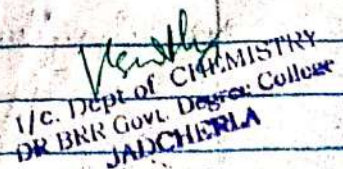 I/c. Dept of CHEMISTRY
DR BRR Govt. Degree College
JADCHERLA